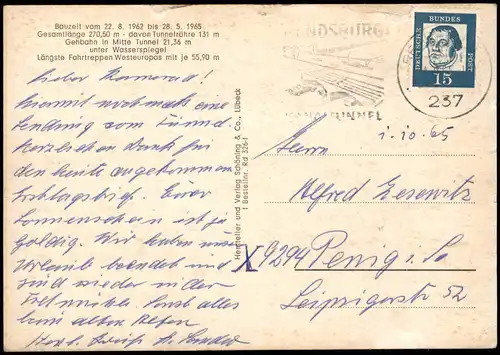 Bauzeit vom 22. 8. 1962 bis 28. 5. 1965
Gesamtlänge 270,50 m - davon Tunnelröhre 131 m
Gehbahn in Mitte Tunnel 21,36 m
unter Wasserspiegel
Längste Fahrtreppen Westeuropas mit je 55,90 m
Lieber Kamerad!
Hiermit noch mal eine
Sendung vom Tunnel
Herzlichen Dank für
den heute angekommenen
Euer
Sonnenschein ist ja
goldig. Wir haben
Urlaub beendet und
sind wieder in der
Sonst alles
beim alten
Herzl.
Hersteller und Verlag Schöning & Co., Lübeck
1 Bestellnr. Rd 326
NDSBURG
TUNNEL
DEUTSCHE BUNDES POST
15
237
1.10.65
Herrn
Alfred Zesewitz
X 9294 Penig i. Sa
Leipzigerstr 52